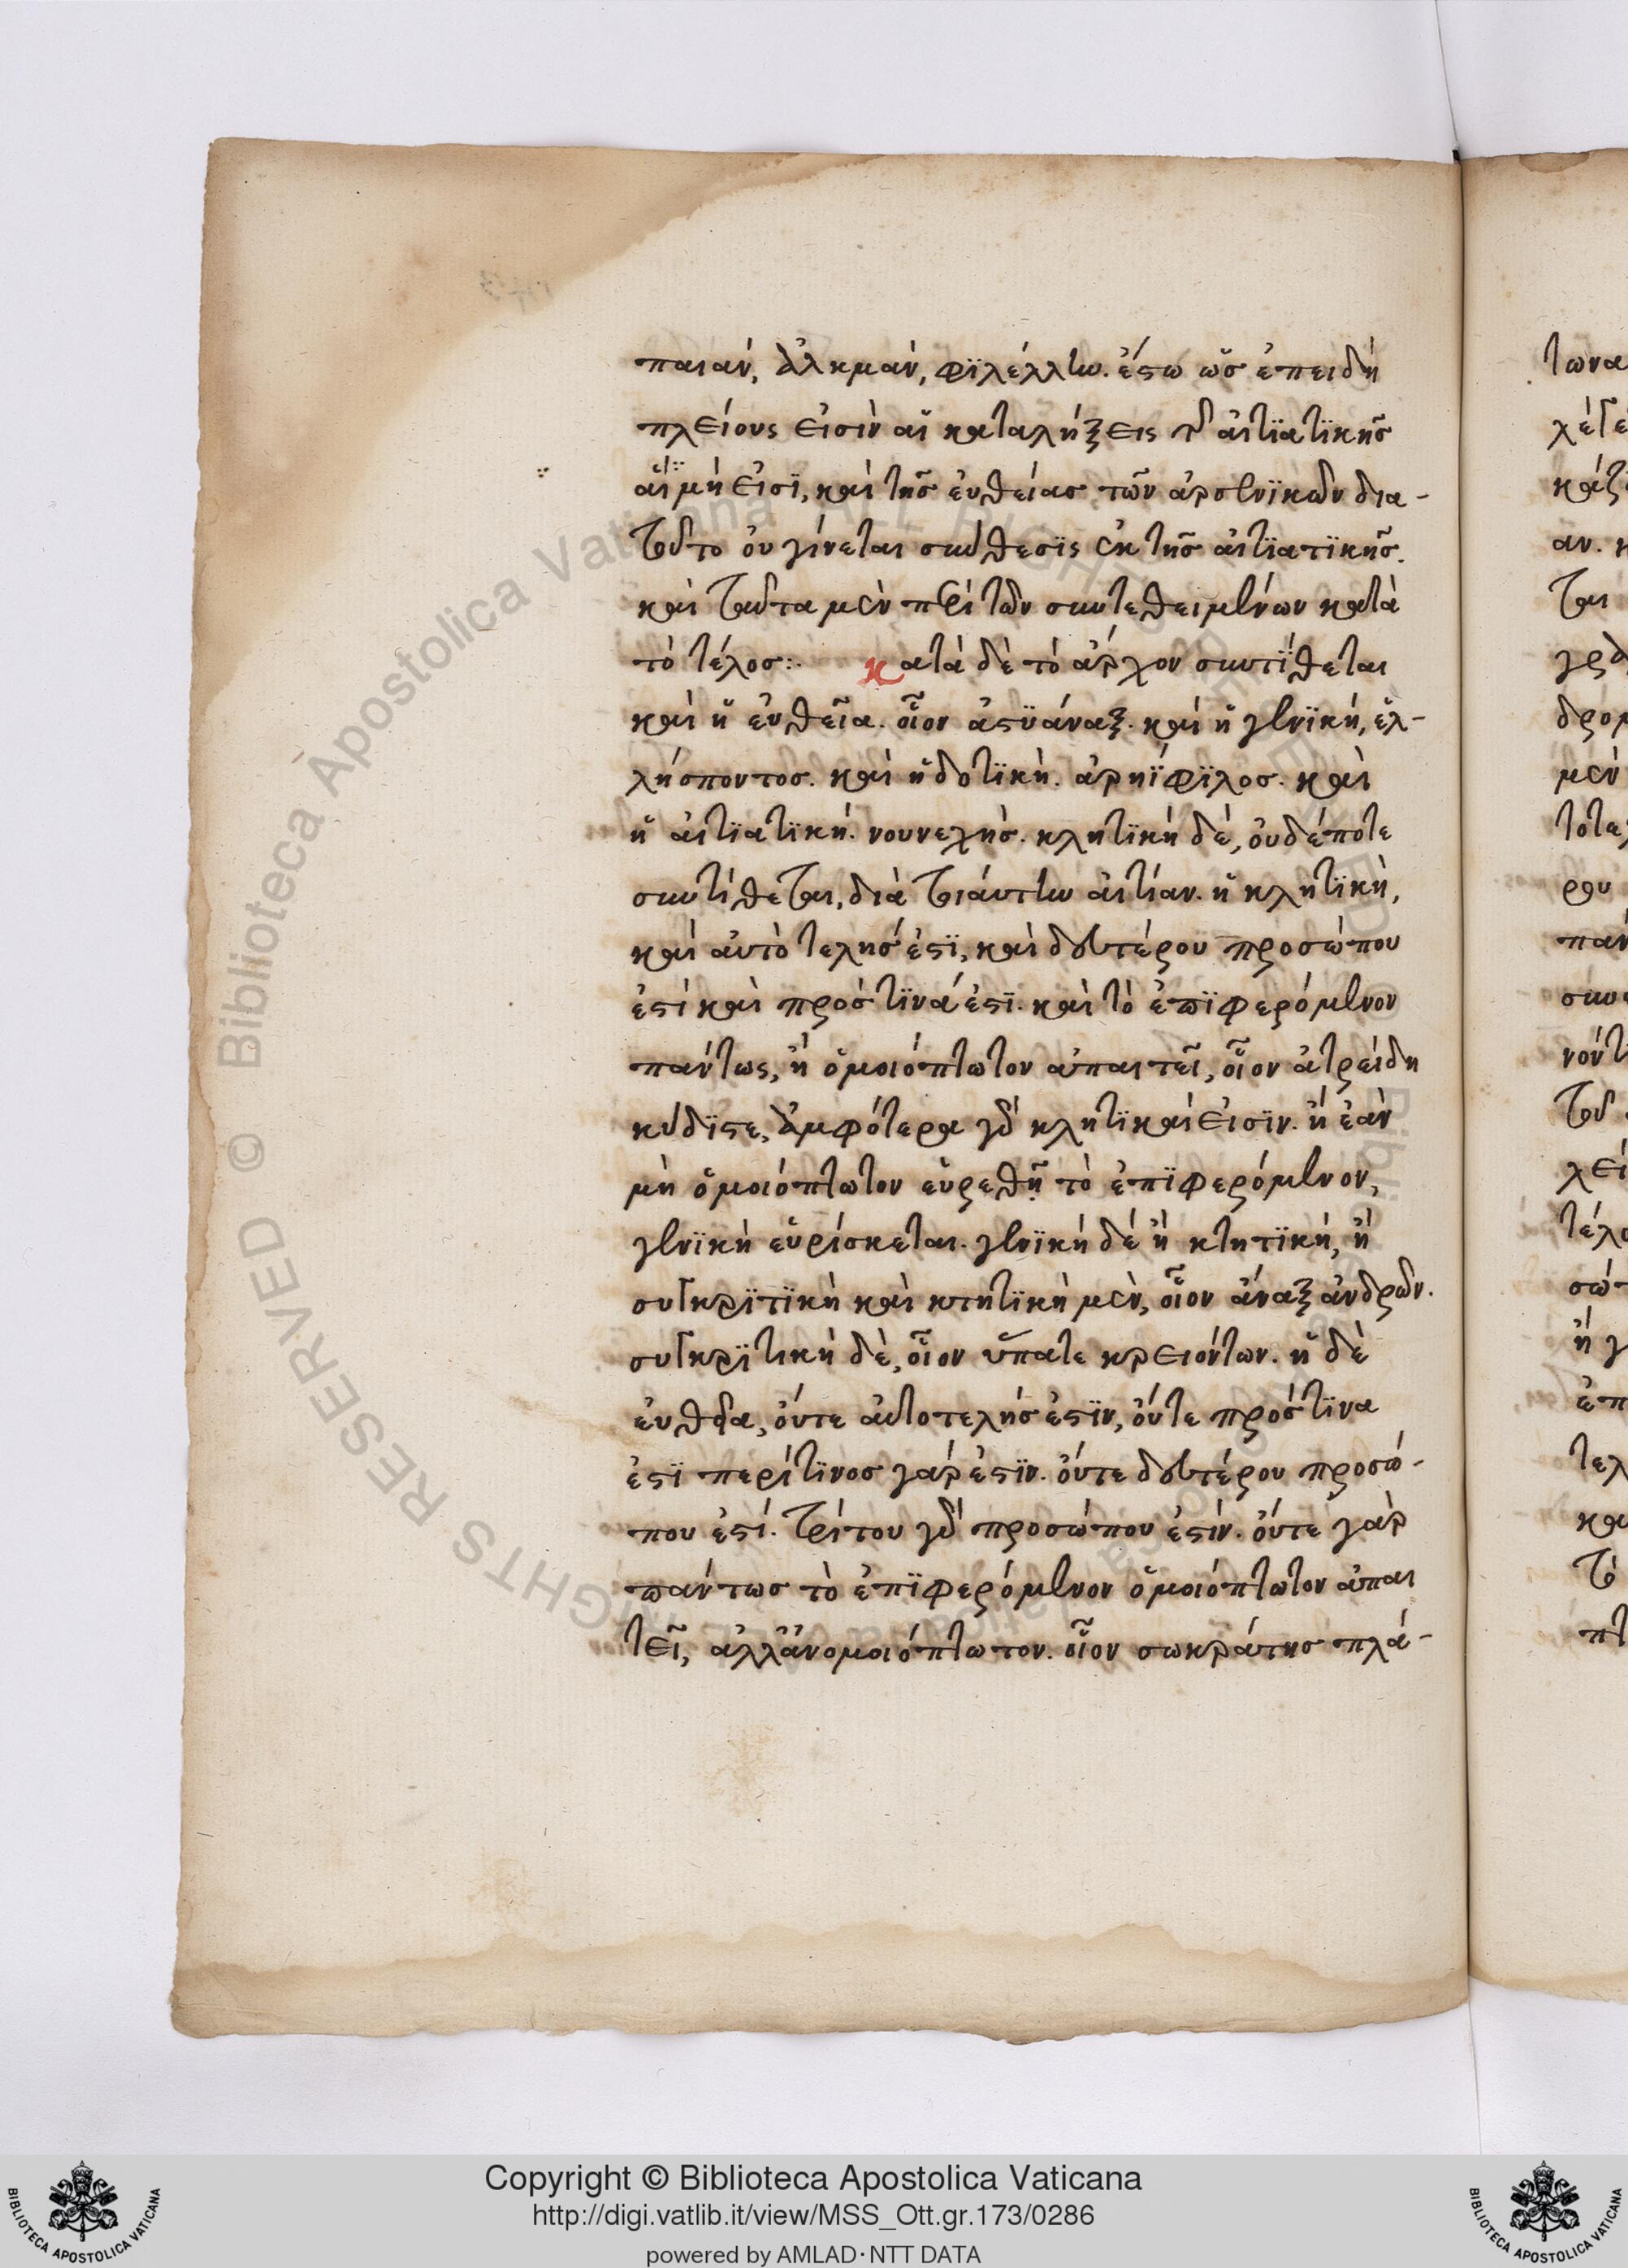 παιάν, ἀλκμάν, φϊλέλλην. ἔστω ὡς ἐπειδὴ
πλείους εἰσὶν αἱ καταλήξεις τῆς αἰτϊατϊκῆς
αἳ μή εἰσϊ, καὶ τῆς εὐθείας τῶν ἀρσενϊκῶν δια-
τοῦτο οὐ γίνεται σύνθεσϊς ἐκ τῆς αἰτϊατϊκῆς.
καὶ ταῦτα μὲν περὶ τῶν συντεθειμένων κατὰ
τὸ τέλος:. κατὰ δὲ τὸ ἄρχον συντϊθεται
καὶ ἡ εὐθεῖα. οἷον ἀστϋάναξ. καὶ ἡ γενϊκή, ἑλ-
λήσποντος. καὶ ἡ δοτϊκὴ. ἀρηϊφϊλος. καὶ
ἡ αἰτϊατϊκή. νουνεχὴς. κλητϊκὴ δέ, οὐδέποτε
συντίθεται, διὰ τοιάυτην αἰτίαν. ἡ κλητϊκὴ,
καὶ αὐτὸτελής ἐστϊ, καὶ δευτέρου προσώπου
ἐστὶ καὶ πρός τϊνά ἐστϊ. καὶ τὸ ἐπϊφερόμενον
πάντως, ἢ ὁμοιόπτωτον ἀπαιτεῖ, οἷον ἀτρείδη
κύδϊστε, ἀμφότερα γὰρ κλητϊκαί εἰσϊν. ἢ ἐὰν
μὴ ὁμοιόπτωτον εὑρεθῇ τὸ ἐπϊφερόμενον,
γενϊκὴ εὑρίσκεται. γενϊκὴ δέ ἢ κτητϊκή, ἢ
συγκρϊτϊκὴ καὶ κτητϊκὴ μὲν, οἷον ἄναξ ἀνδρῶν.
συγκρϊτικὴ δὲ, οἷον ὕπατε κρειόντων. ἡ δὲ
εὐθεῖα, ὄυτε αὐτοτελής ἐστϊν, ὄυτε πρός τϊνα
ἐστϊ περί τϊνος γάρ ἐστϊν. ὄυτε δευτέρου προσώ-
που ἐστί. τρίτου γὰρ προσώπου ἐστίν. ὄυτε γὰρ
πάντως τὸ ἐπϊφερόμενον ὁμοιόπτωτον ἀπαι
τεῖ, ἀλλ' ἀνομοιόπτωτον. οἷον σωκράτης πλά-
Copyright © Biblioteca Apostolica Vaticana
http://digi.vatlib.it/view/MSS_Ott.gr.173/0286
powered by AMLAD·NTT DATA